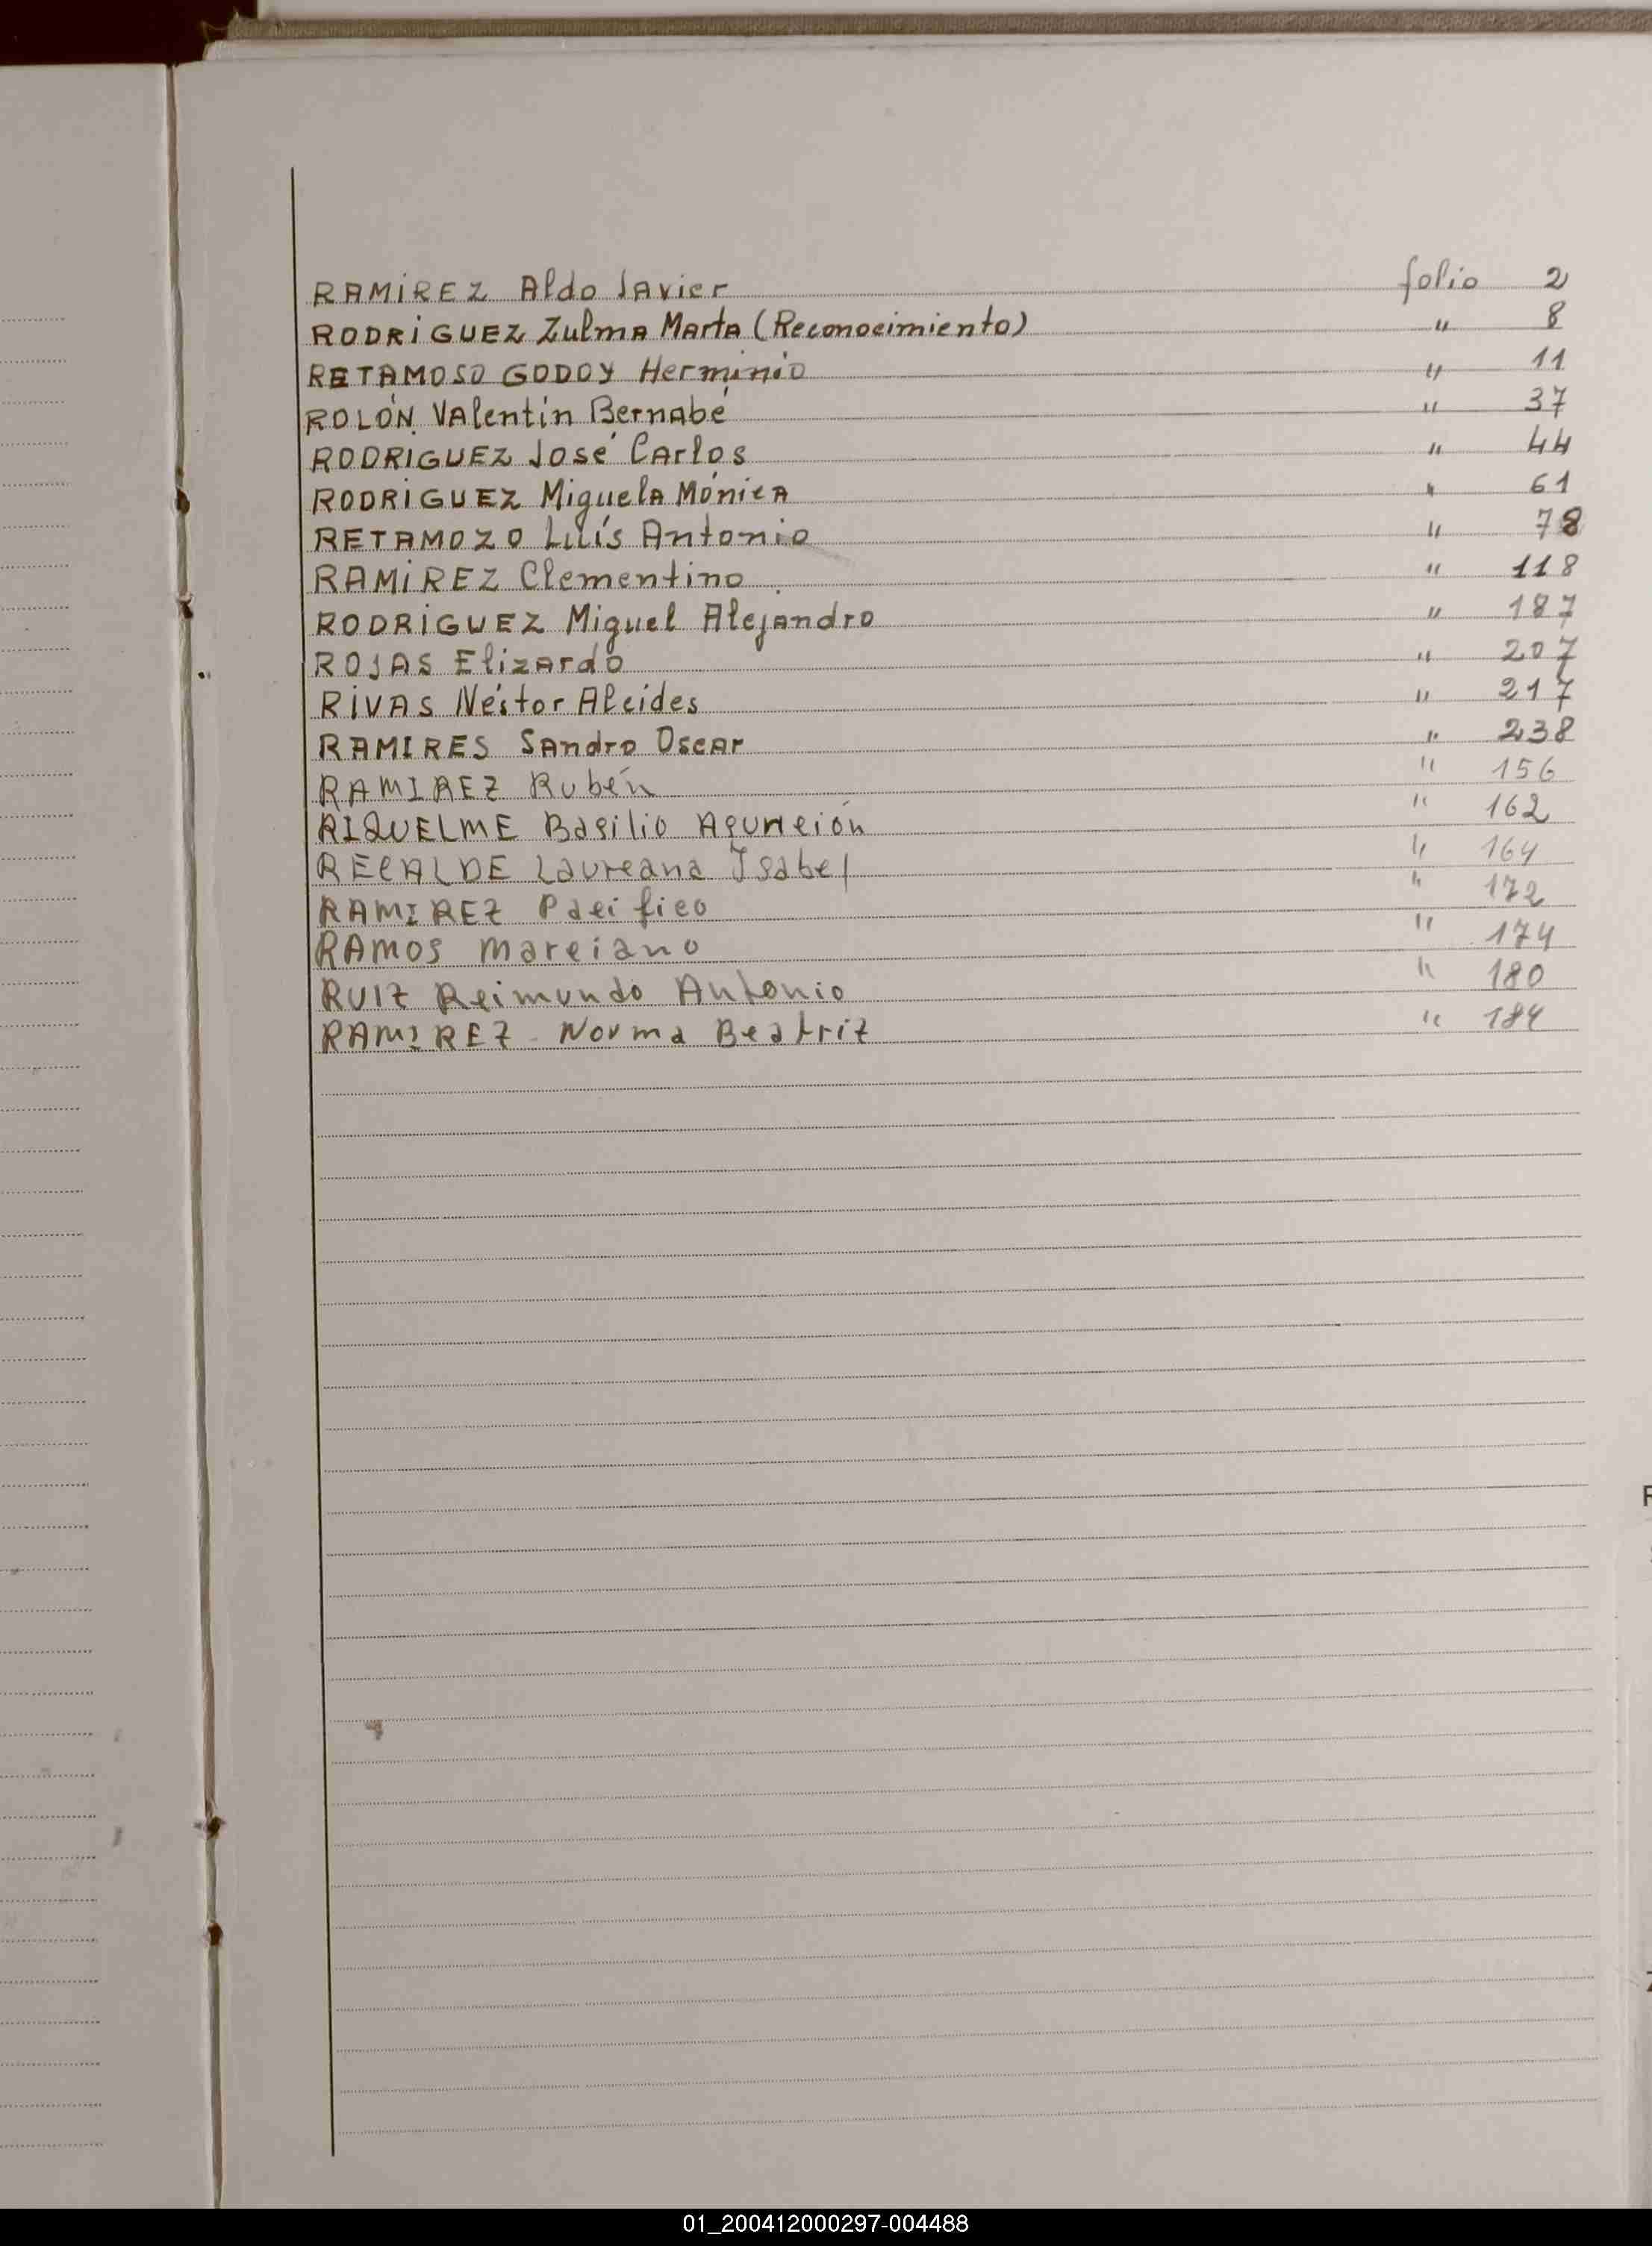 RAMIREZ Aldo Javier folio 2
RODRIGUEZ Zulma Marta (Reconocimiento) " 8
RETAMOSO GODOY Herminio " 11
ROLÓN Valentín Bernabé " 37
RODRIGUEZ José Carlos " 44
RODRIGUEZ Miguela Mónica " 61
RETAMOZO Luis Antonio " 78
RAMIREZ Clementino " 118
RODRIGUEZ Miguel Alejandro " 187
ROJAS Elizardo " 207
RIVAS Néstor Alcides " 217
RAMIRES Sandro Oscar " 238
RAMIREZ Rubén " 156
RIQUELME Basilio Asunción " 162
RECALDE Laureana Isabel " 164
RAMIREZ Pacifico " 172
RAMOS Marciano " 174
RUIZ Reimundo Antonio " 180
RAMIREZ Norma Beatriz " 184
01_200412000297-004488